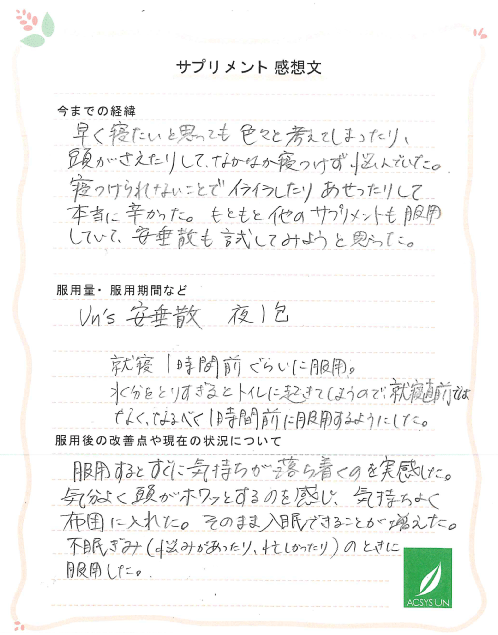 サプリメント 感想文
今までの経緯
早く寝たいと思っても 色々と考えてしまったり、
頭がさえたりして、なかなか寝つけず 悩んでいた。
寝つけられないことでイライラしたり あせったりして
本当に辛かった。もともと他のサプリメントも服用
していて、安垂散も試してみようと思った。
服用量・服用期間など
Un's 安垂散 夜1包
就寝1時間前ぐらいに服用。
水分をとりすぎるとトイレに起きてしまうので、就寝直前では
なく、なるべく1時間前に服用するようにした。
服用後の改善点や現在の状況について
服用するとすぐに気持ちが落ち着くのを実感した。
気分よく頭がホワッとするのを感じ、気持ちよく
布団に入れた。そのまま入眠できることが増えた。
不眠ぎみ(悩みがあったり、忙しかったり)のときに
服用した。
ACSYS UN